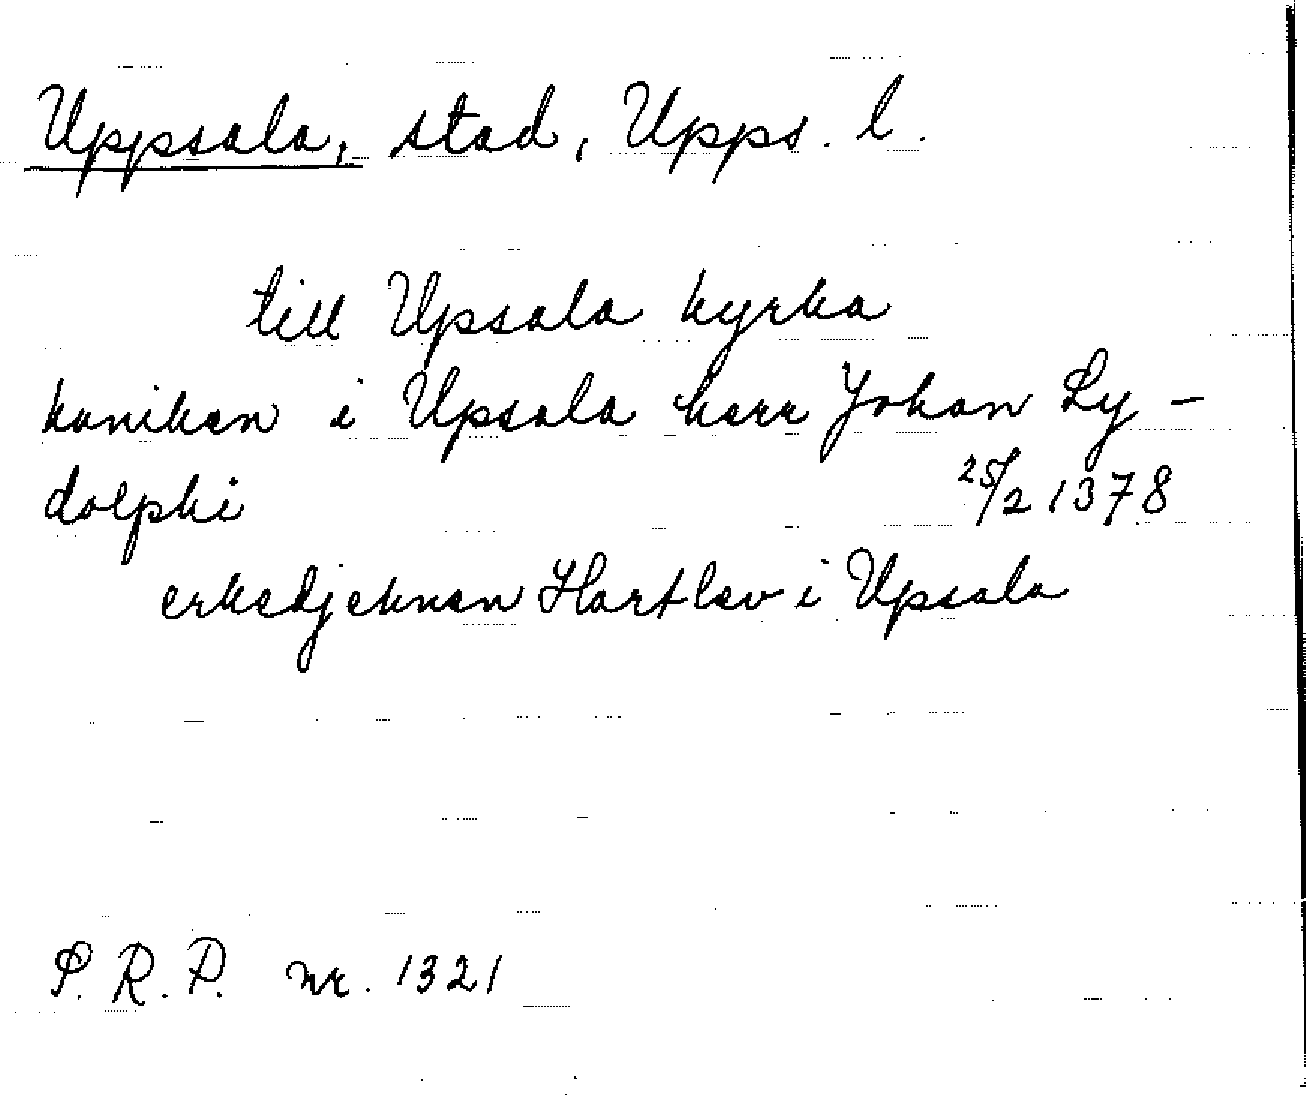 Uppsala, stad, Upps. l.
till Upsala kyrka
kaniken i Upsala herr Johan Ly-
dolphi 25/2 1378
erkedjeknen Hartlev i Upsala
S. R. P. nr. 1321